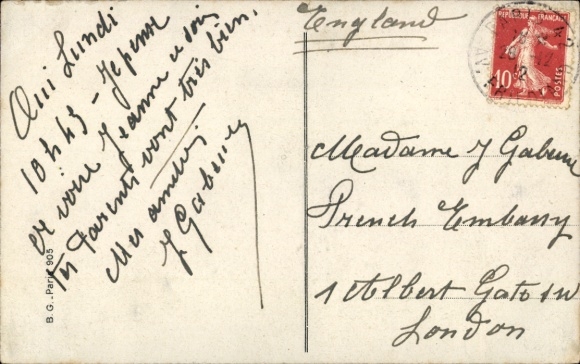 Oui Lundi
10h45 - Je pense
et voire Jeanne ce soir
Tes Parents vont très bien.
Mes amitiés
J Gabeure
B. G. - Paris 905
England
REPUBLIQUE FRANÇAISE
10c
POSTES
Madame J Gabeure
French Embassy
1 Albert Gate SW
London